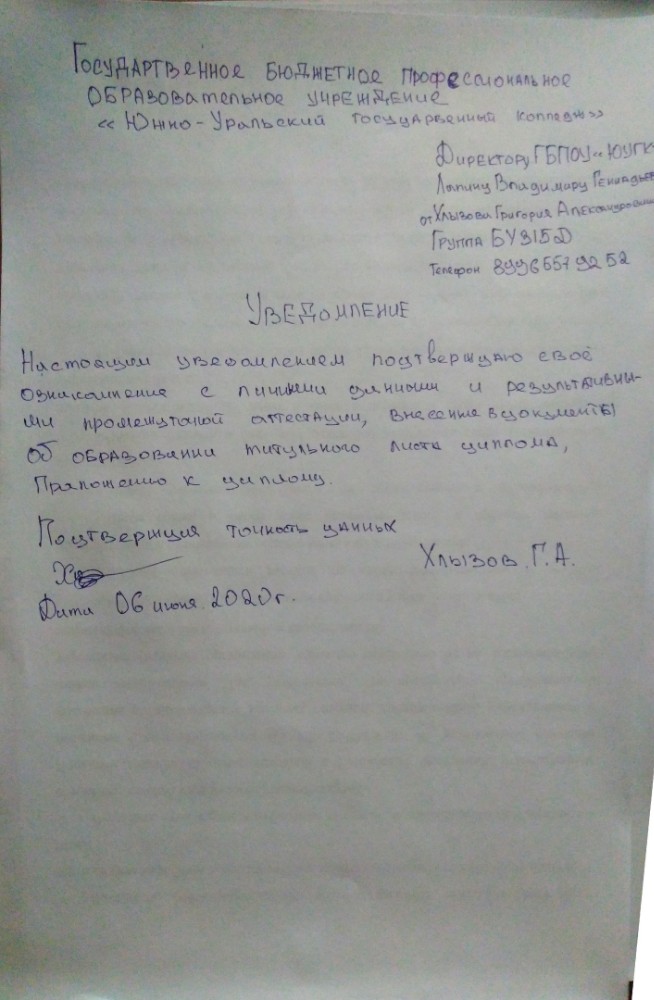 Государтвенное бюджетное профессиональное
образовательное учреждение
«Южно-Уральский государвенный колледж»
Директору ГБПОУ «ЮУГК
Лапину Владимиру Геннадьев
от Хлызова Григория Александрович
Группа БУ315Д
Телефон 89965579252
Уведомление
Настоящим уведомлением подтверждаю своё
ознакомление с личными данными и результативны-
ми промежуточной аттестации, внесенные в документы
об образовании титульного листа диплома,
Приложению к диплому.
Подтверждия точность данных
Хлызов Г.А.
Дата 06 июня 2020г.